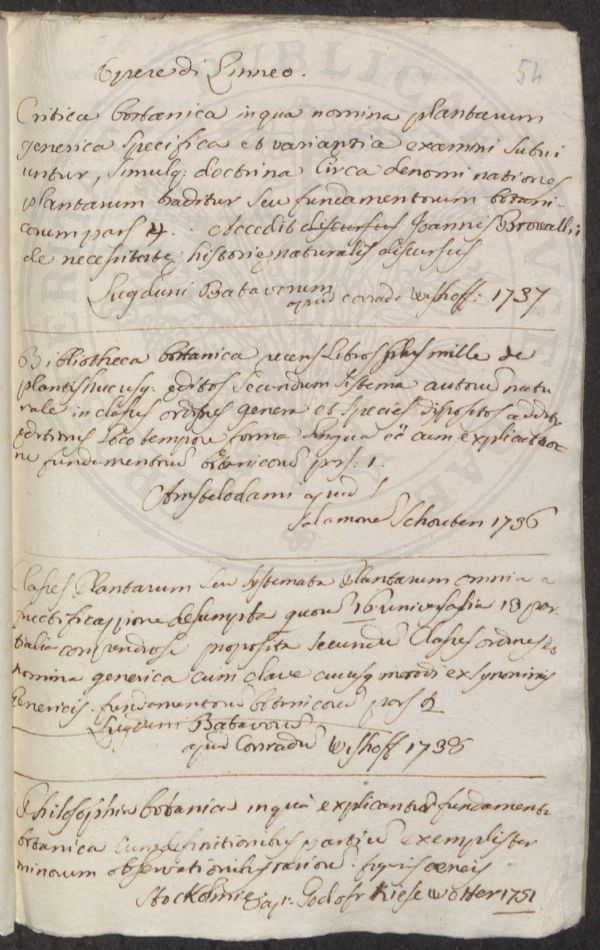 Opere di Linneo.
54
Critica botanica in qua nomina plantarum
generica specifica et variantia examini subii
untur, simulq; doctrina circa denominationes
plantarum traditur seu fundamentorum botani-
corum pars 4. Accedit discursus Joannis Browallii
de necessitate historię naturalis discursus
Lugduni Batavorum
apud conradū wishoff: 1737
Bibliotheca botanica recens Libros plus mille de
plantis hucusq; editos secundum sistema autorū natu
rale in clases ordines genera et species dispositos additis
editionis loco tempore forma lingua &c cum explicatio
ne fundamentorū botanicorū pars: 1.
Amstelodami apud
Salamonē Schouten 1736
Clases Plantarum seu systemata plantarum omnia a
fructificazione desumpta quorū 16 universalia 13 par-
tialia compendiose proposita secundū clases ordines &
nomina generica cum clave cuiusq metodi ex synonimis
genericis. fundamentorū botanicorū pars 2
Lugduni Batavorū
apud Conradū Wishoff 1738
Philosophia botanica in qua explicantur fundamenta
botanica cum definitionibus partiū exemplis ter
minorum observationibus rariorū figuris aeneis
Stockolmię ap: Godofr Kiesewotter 1751